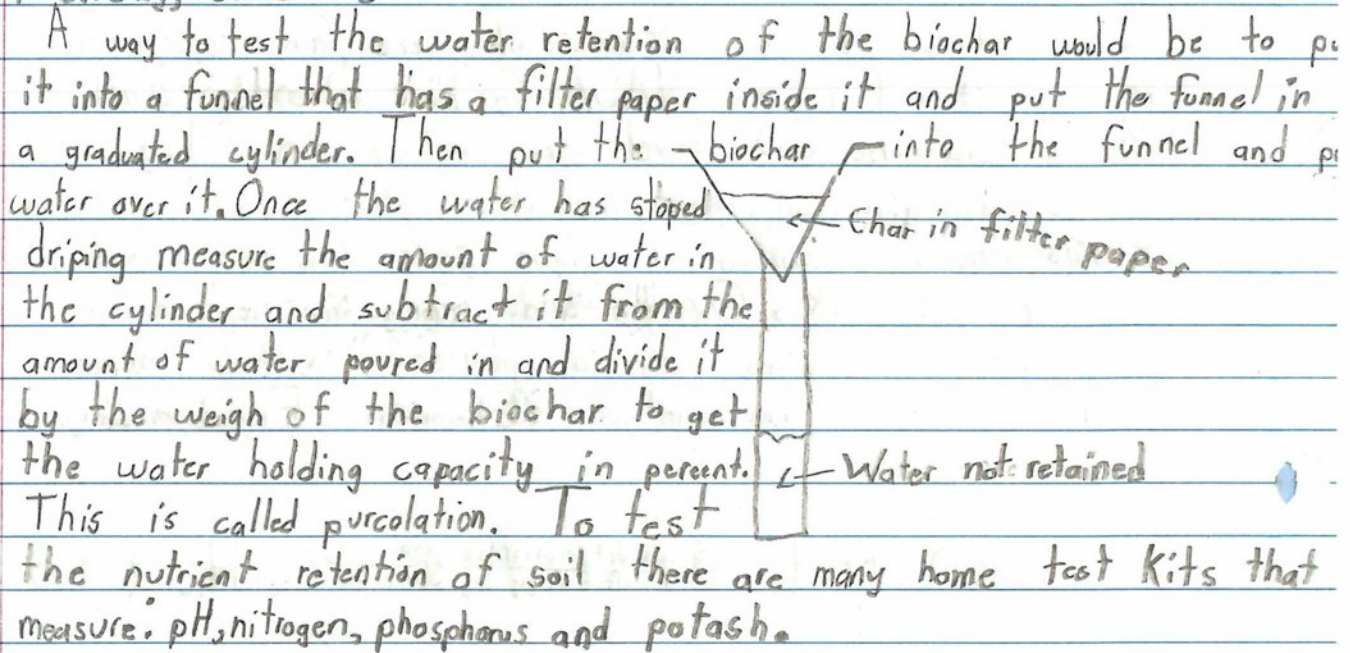 A way to test the water retention of the biochar would be to
it into a funnel that has a filter paper inside it and put the funnel in
a graduated cylinder. Then put the biochar into the funnel and
water over it. Once the water has stoped
Char in filter paper
driping measure the amount of water in
the cylinder and subtract it from the
amount of water poured in and divide it
by the weigh of the biochar to get
the water holding capacity in percent.
Water not retained
This is called purcolation. To test
the nutrient retention of soil there are many home test kits that
measure: pH, nitrogen, phosphorus and potash.